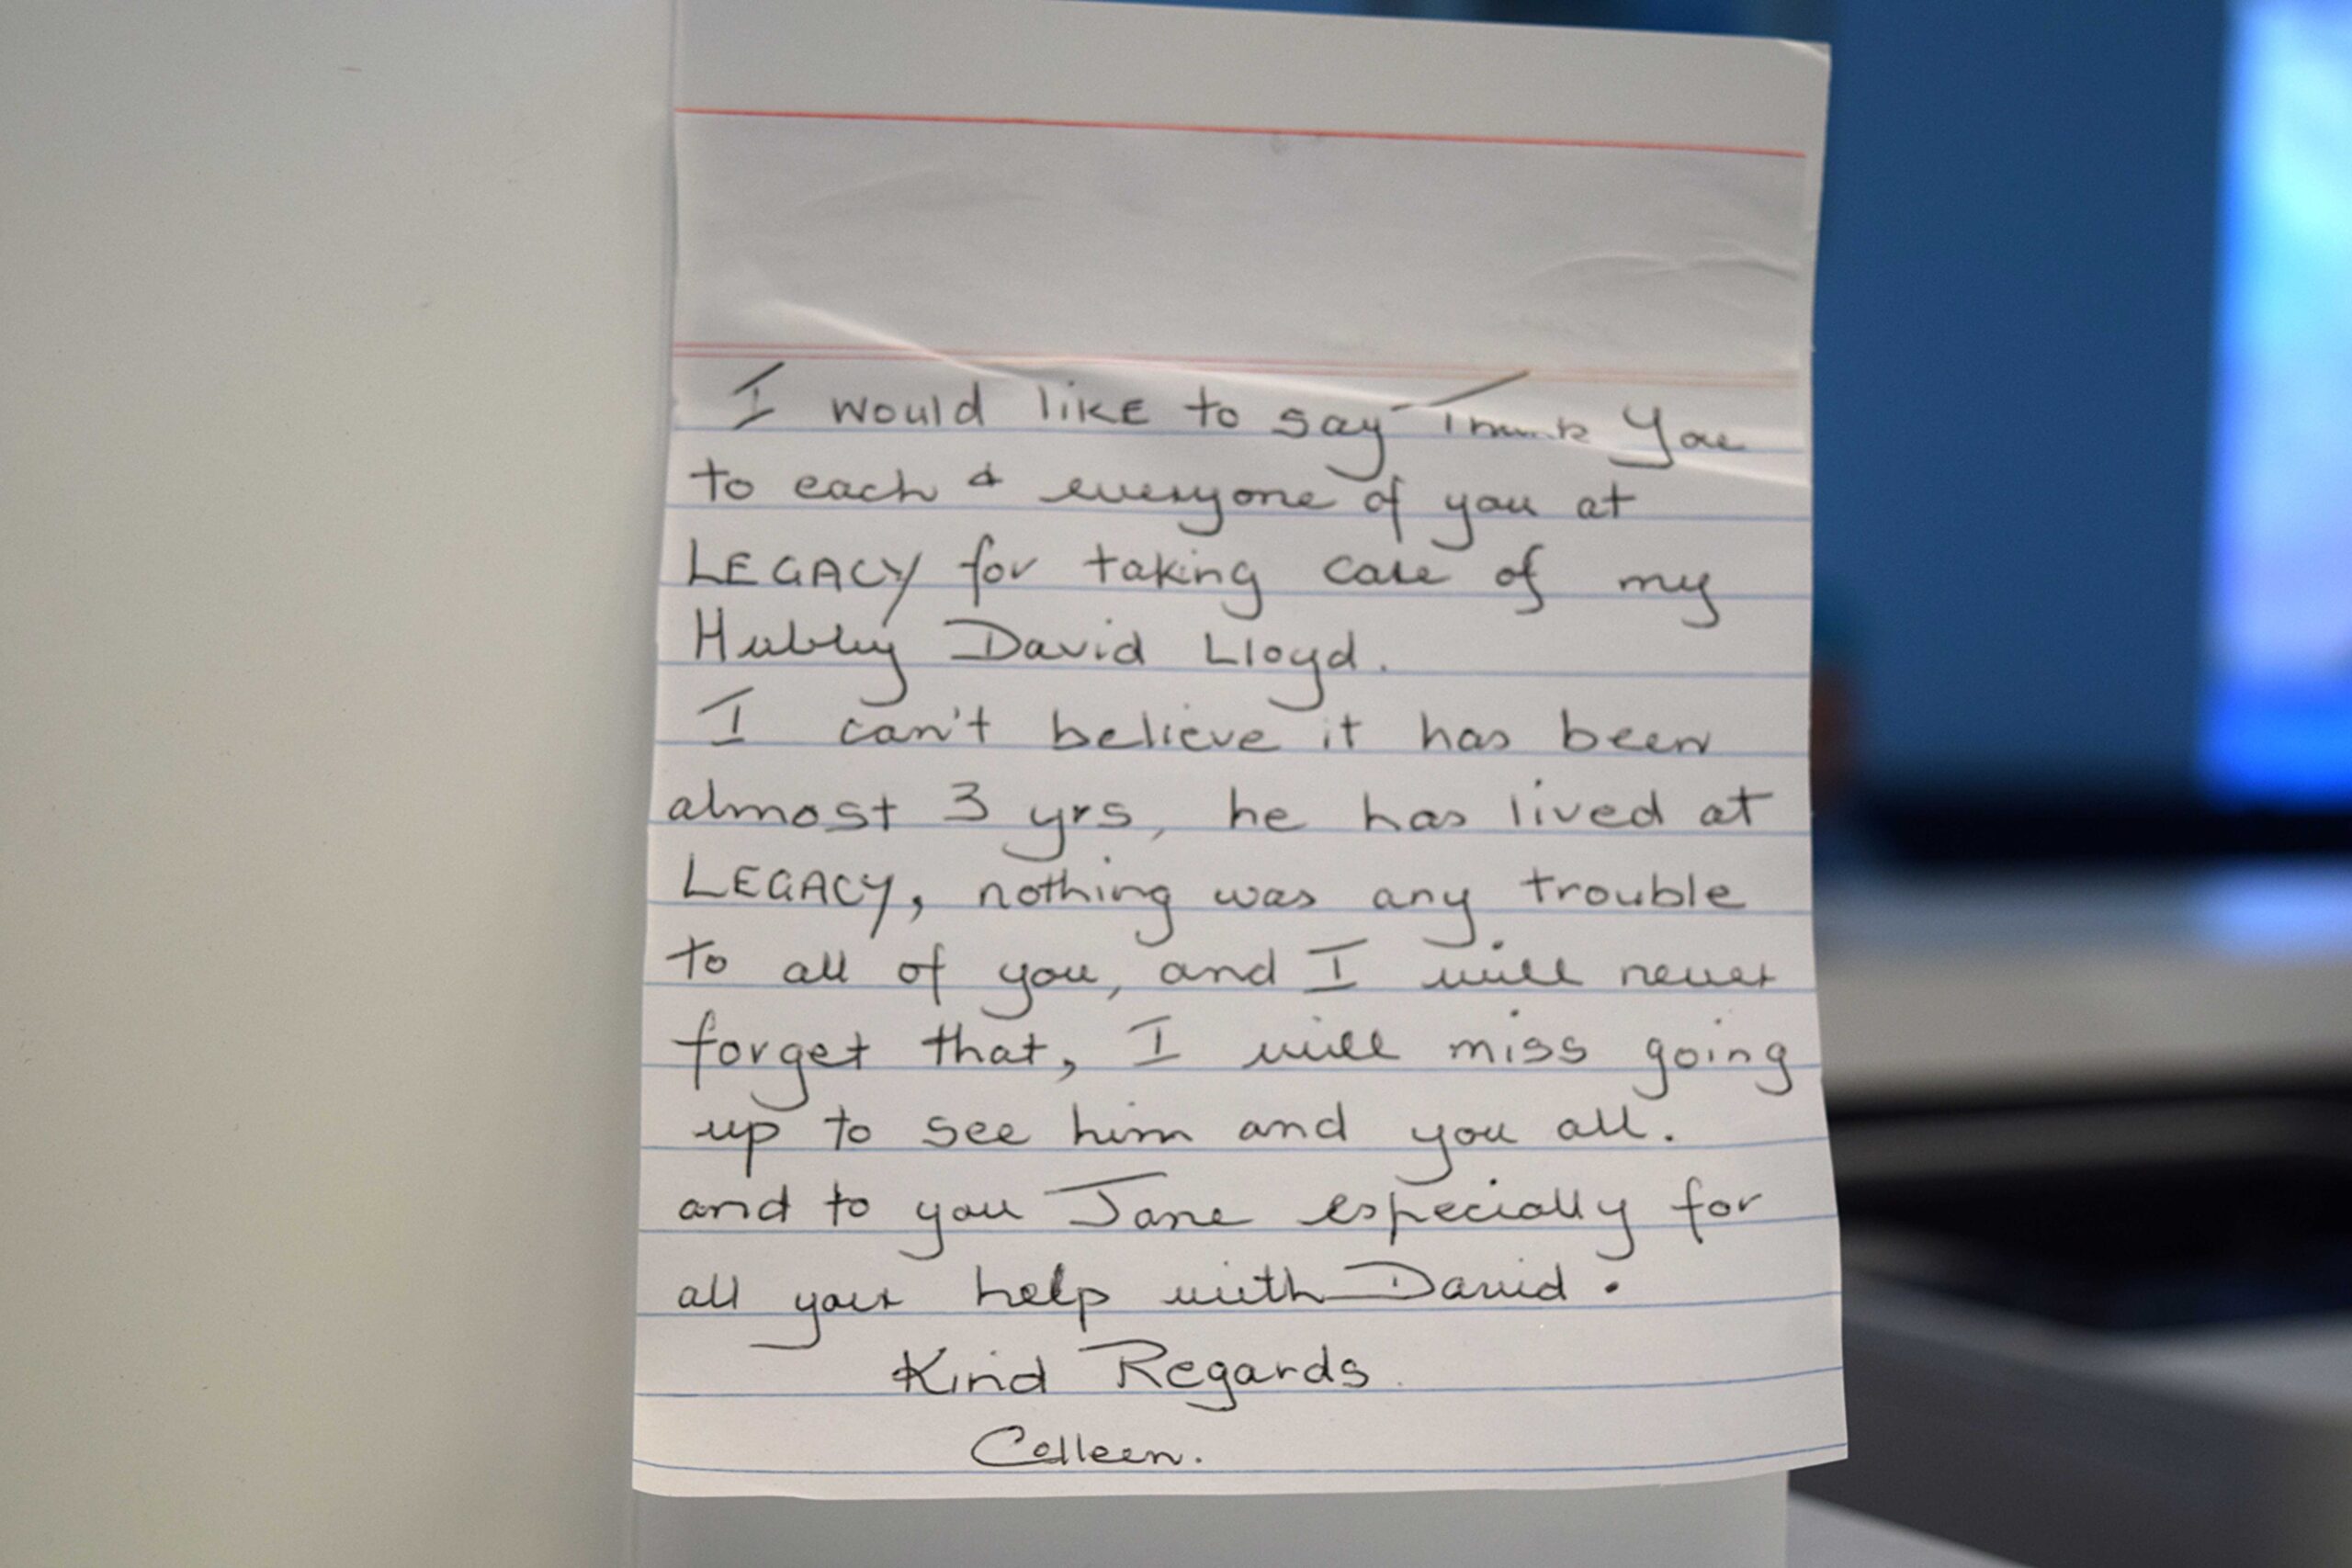 I would like to say Thank You
to each & everyone of you at
LEGACY for taking care of my
Hubby David Lloyd.
I can't believe it has been
almost 3 yrs, he has lived at
LEGACY, nothing was any trouble
to all of you, and I will never
forget that, I will miss going
up to see him and you all.
and to you Jane especially for
all your help with David.
Kind Regards
Colleen.